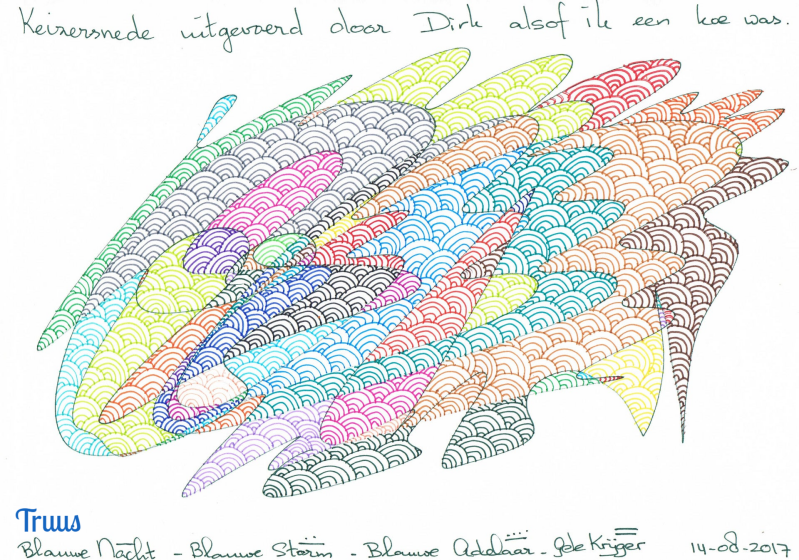 Keizersnede uitgevoerd door Dirk alsof ik een koe was.
Truus
Blauwe Nacht - Blauwe Storm - Blauwe Adelaar - Gele Krijger 14-08-2017